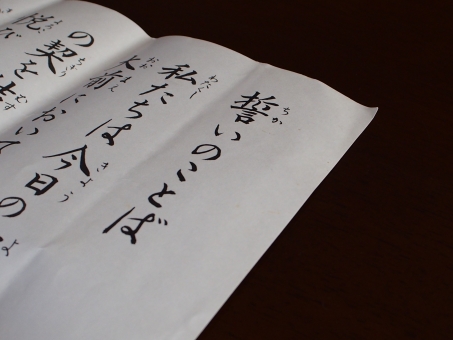 誓いのことば
私たちは今日の
大前において
の契を結